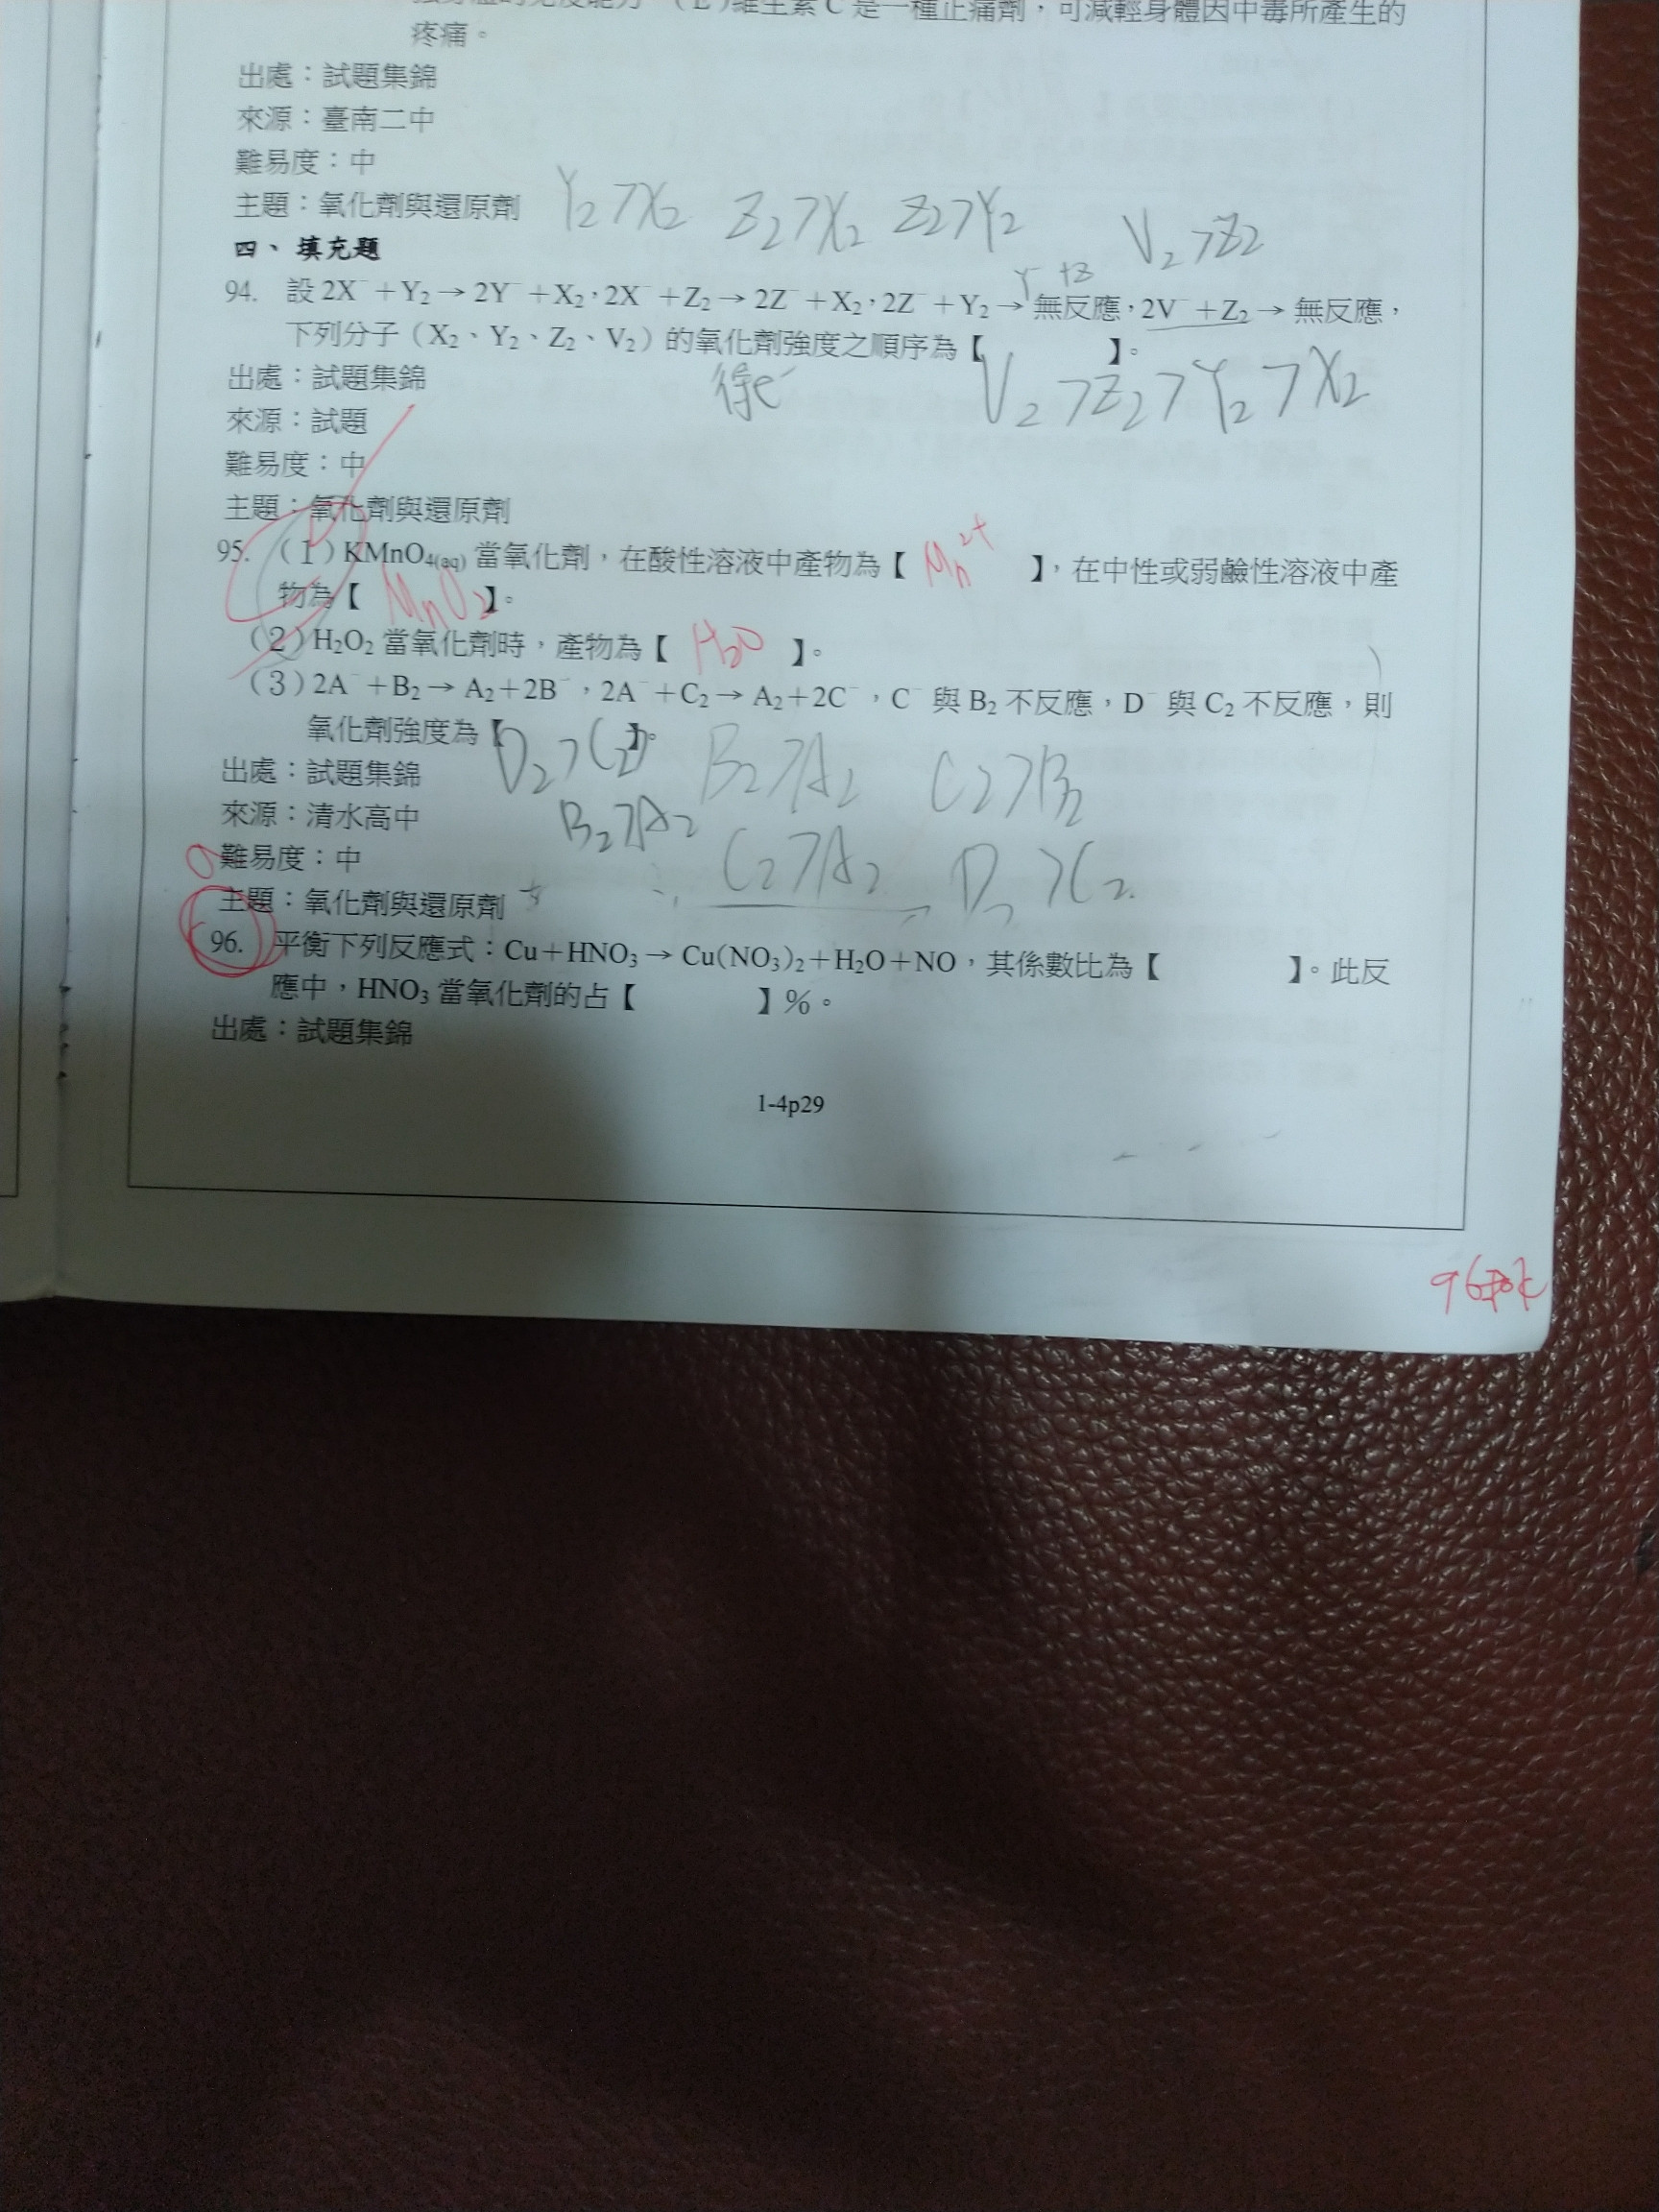 維生素C是一種止痛劑，可減輕身體因中毒所產生的
疼痛。
出處：試題集錦
來源：臺南二中
難易度：中
主題：氧化劑與還原劑
Y₂>X₂ Z₂>X₂ Z₂>Y₂ V₂>Z₂
四、填充題
Y⁻ +Z
94. 設 2X⁻+Y₂→2Y⁻+X₂，2X⁻+Z₂→2Z⁻+X₂，2Z⁻+Y₂→無反應，2V⁻+Z₂→無反應，
下列分子（X₂、Y₂、Z₂、V₂）的氧化劑強度之順序為【 】。
得e⁻ V₂>Z₂>Y₂>X₂
出處：試題集錦
來源：試題
難易度：中
主題：氧化劑與還原劑
95. （1）KMnO₄(aq) 當氧化劑，在酸性溶液中產物為【 Mn²⁺ 】，在中性或弱鹼性溶液中產
物為【 MnO₂ 】。
（2）H₂O₂ 當氧化劑時，產物為【 H₂O 】。
（3）2A⁻+B₂→A₂+2B⁻，2A⁻+C₂→A₂+2C⁻，C⁻ 與 B₂ 不反應，D⁻ 與 C₂ 不反應，則
氧化劑強度為【 D₂>C₂ 】。 B₂>A₂ C₂>B₂
出處：試題集錦
B₂>A₂
來源：清水高中
C₂>A₂ D₂>C₂
難易度：中
主題：氧化劑與還原劑
96. 平衡下列反應式：Cu+HNO₃→Cu(NO₃)₂+H₂O+NO，其係數比為【 】。此反
應中，HNO₃ 當氧化劑的占【 】%。
出處：試題集錦
1-4p29
96